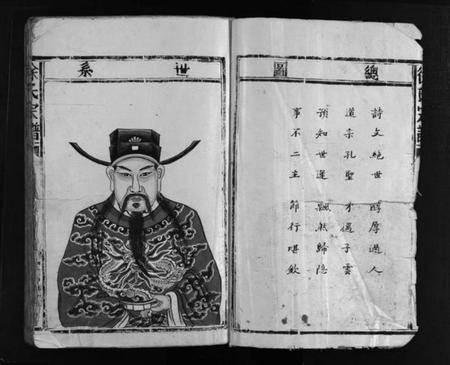 總圖
詩文絶世 醇厚過人
道宗孔聖 才過子雲
預知世運 飄然歸隱
事不二主 節行堪欽
世系
徐氏宗譜